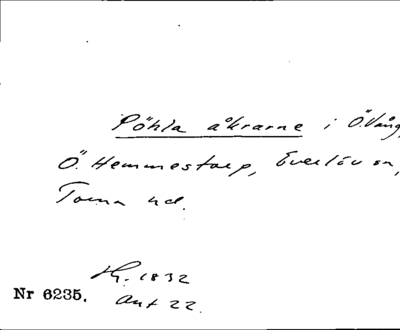 Pöhla åkrarne i Ö.Vång,
Ö. Hemmestorp, Everlöv sn,
Torna hd.
Hg. 1832
Nr 6235. Akt 22.